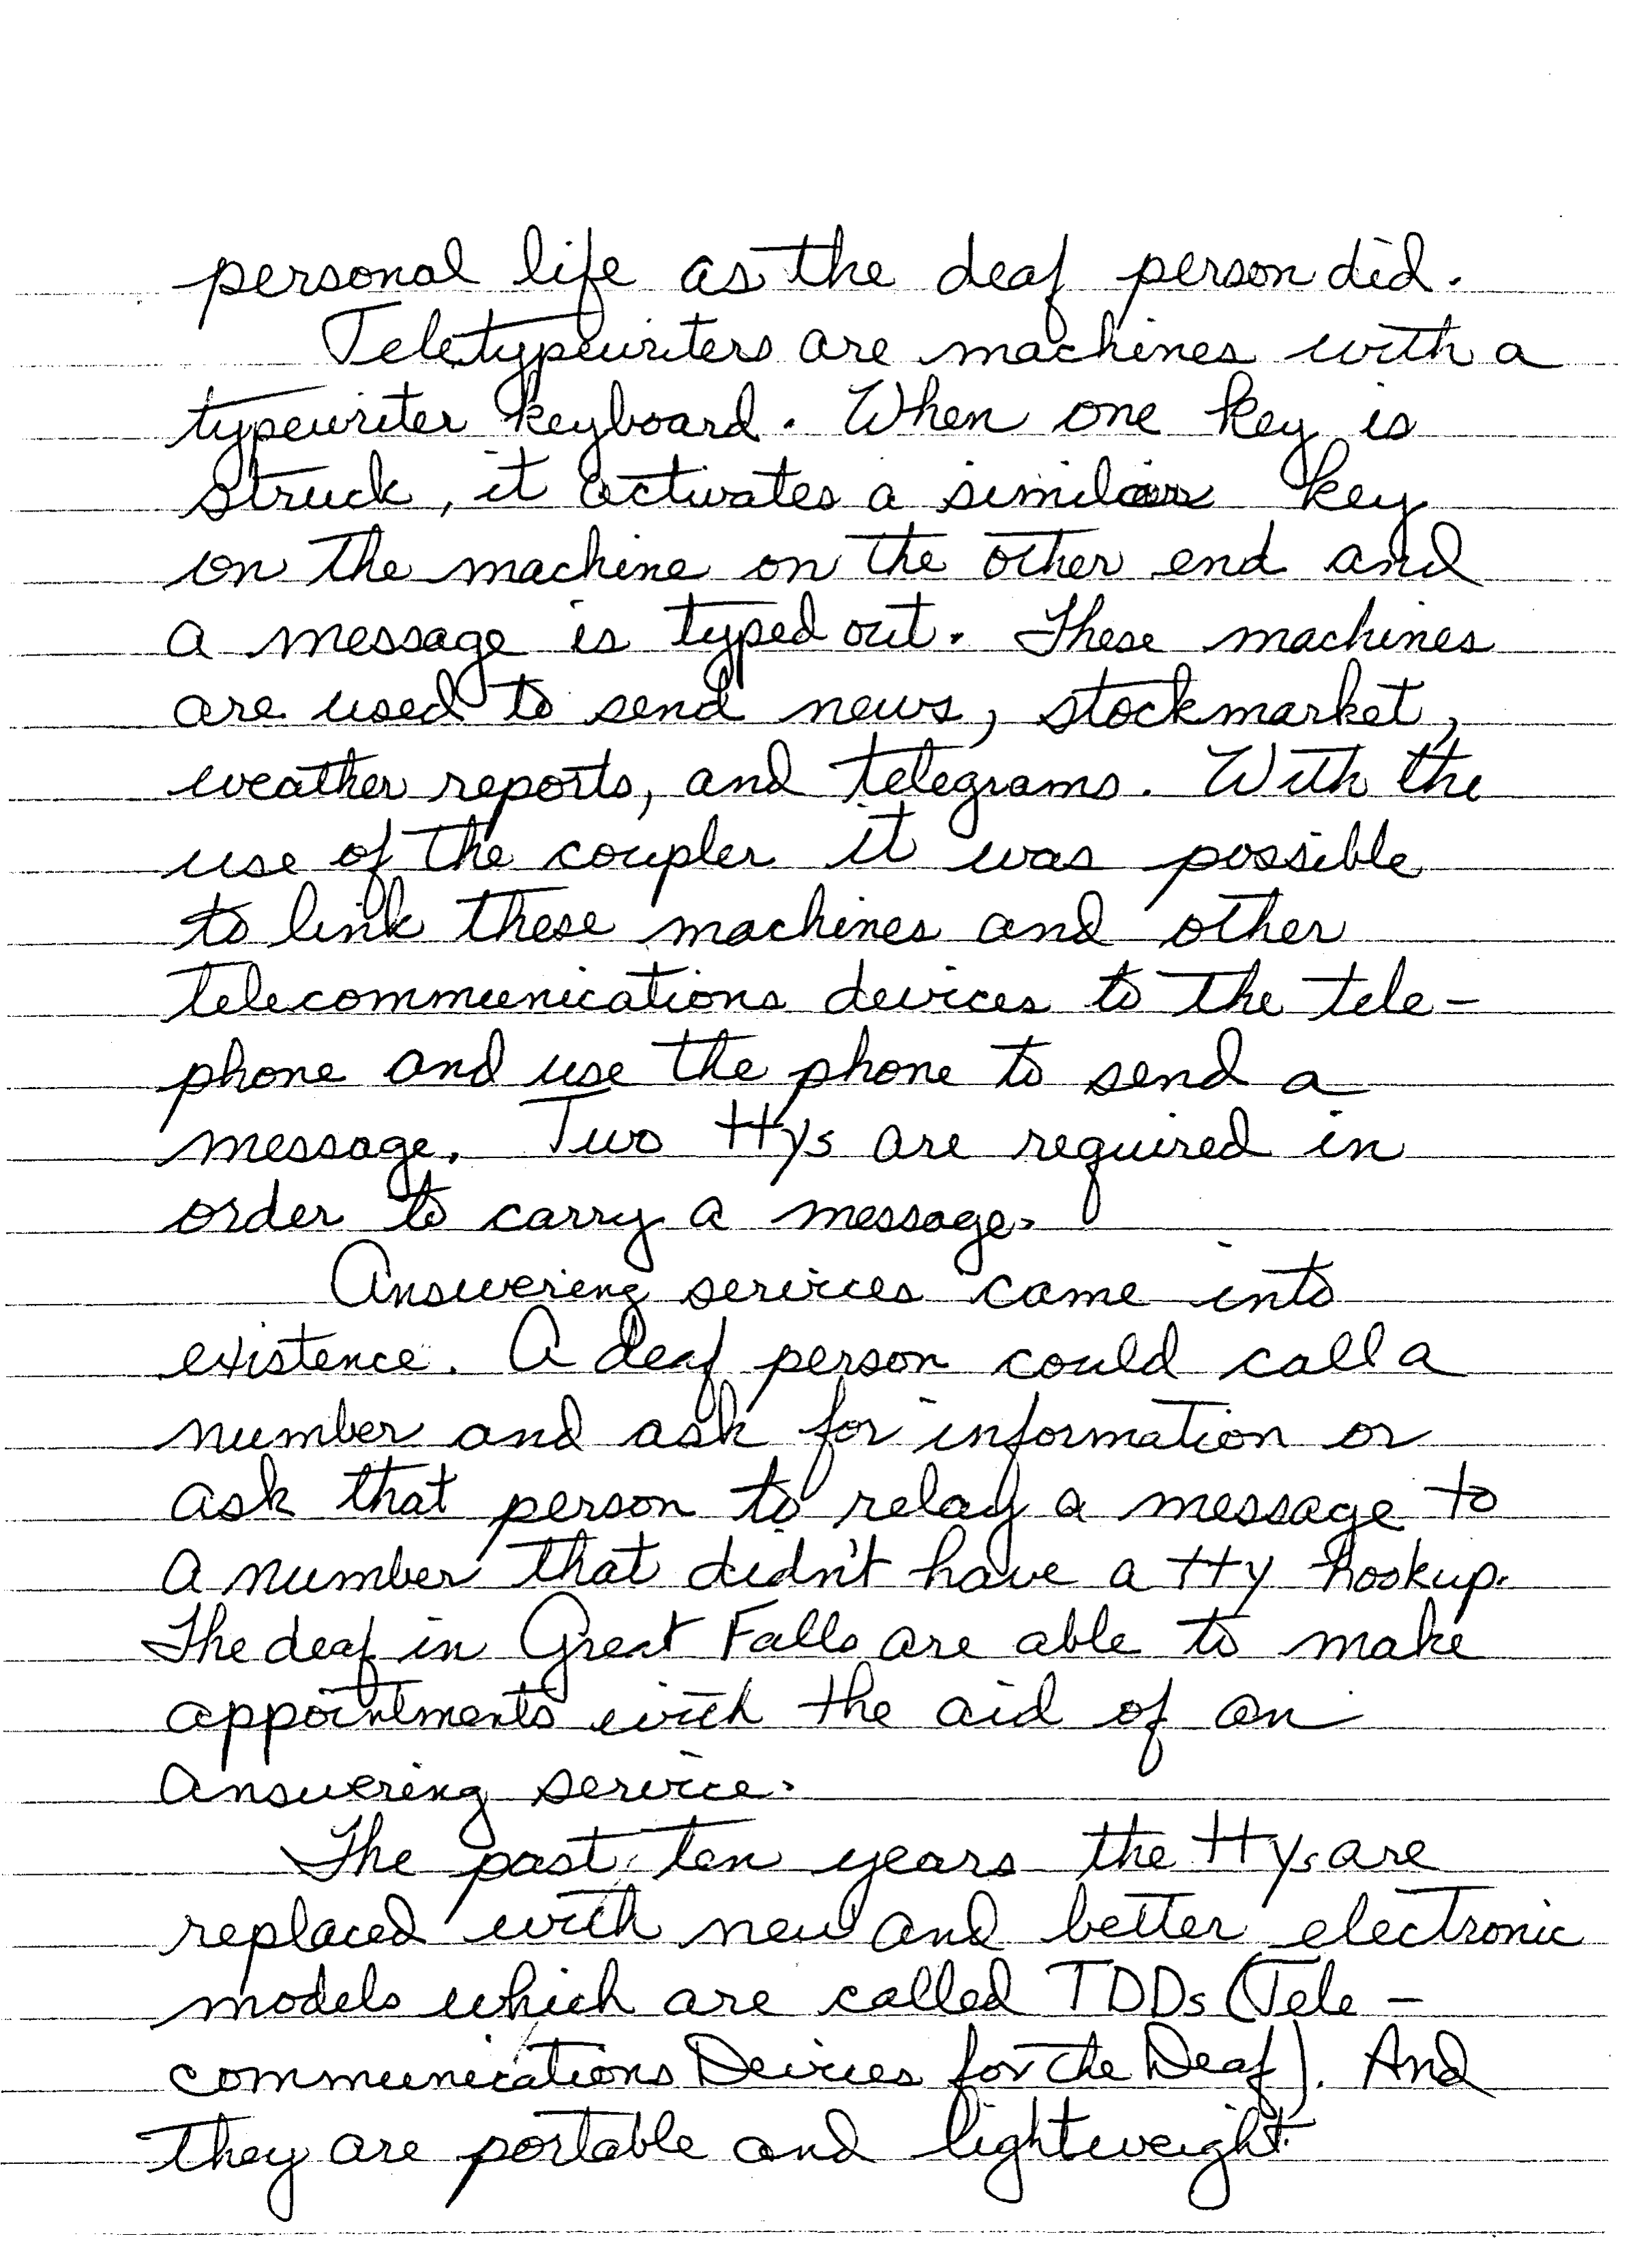 personal life as the deaf person did.
Teletypewriters are machines with a
typewriter keyboard. When one key is
struck, it activates a similar key
on the machine on the other end and
a message is typed out. These machines
are used to send news, stockmarket,
weather reports, and telegrams. With the
use of the coupler it was possible
to link these machines and other
telecommunications devices to the tele-
phone and use the phone to send a
message. Two ttys are required in
order to carry a message.
Answering services came into
existence. A deaf person could call a
number and ask for information or
ask that person to relay a message to
a number that didn't have a tty hookup.
The deaf in Great Falls are able to make
appointments with the aid of an
answering service.
The past ten years the ttys are
replaced with new and better electronic
models which are called TDDs (Tele-
communications Devices for the Deaf). And
they are portable and lightweight.